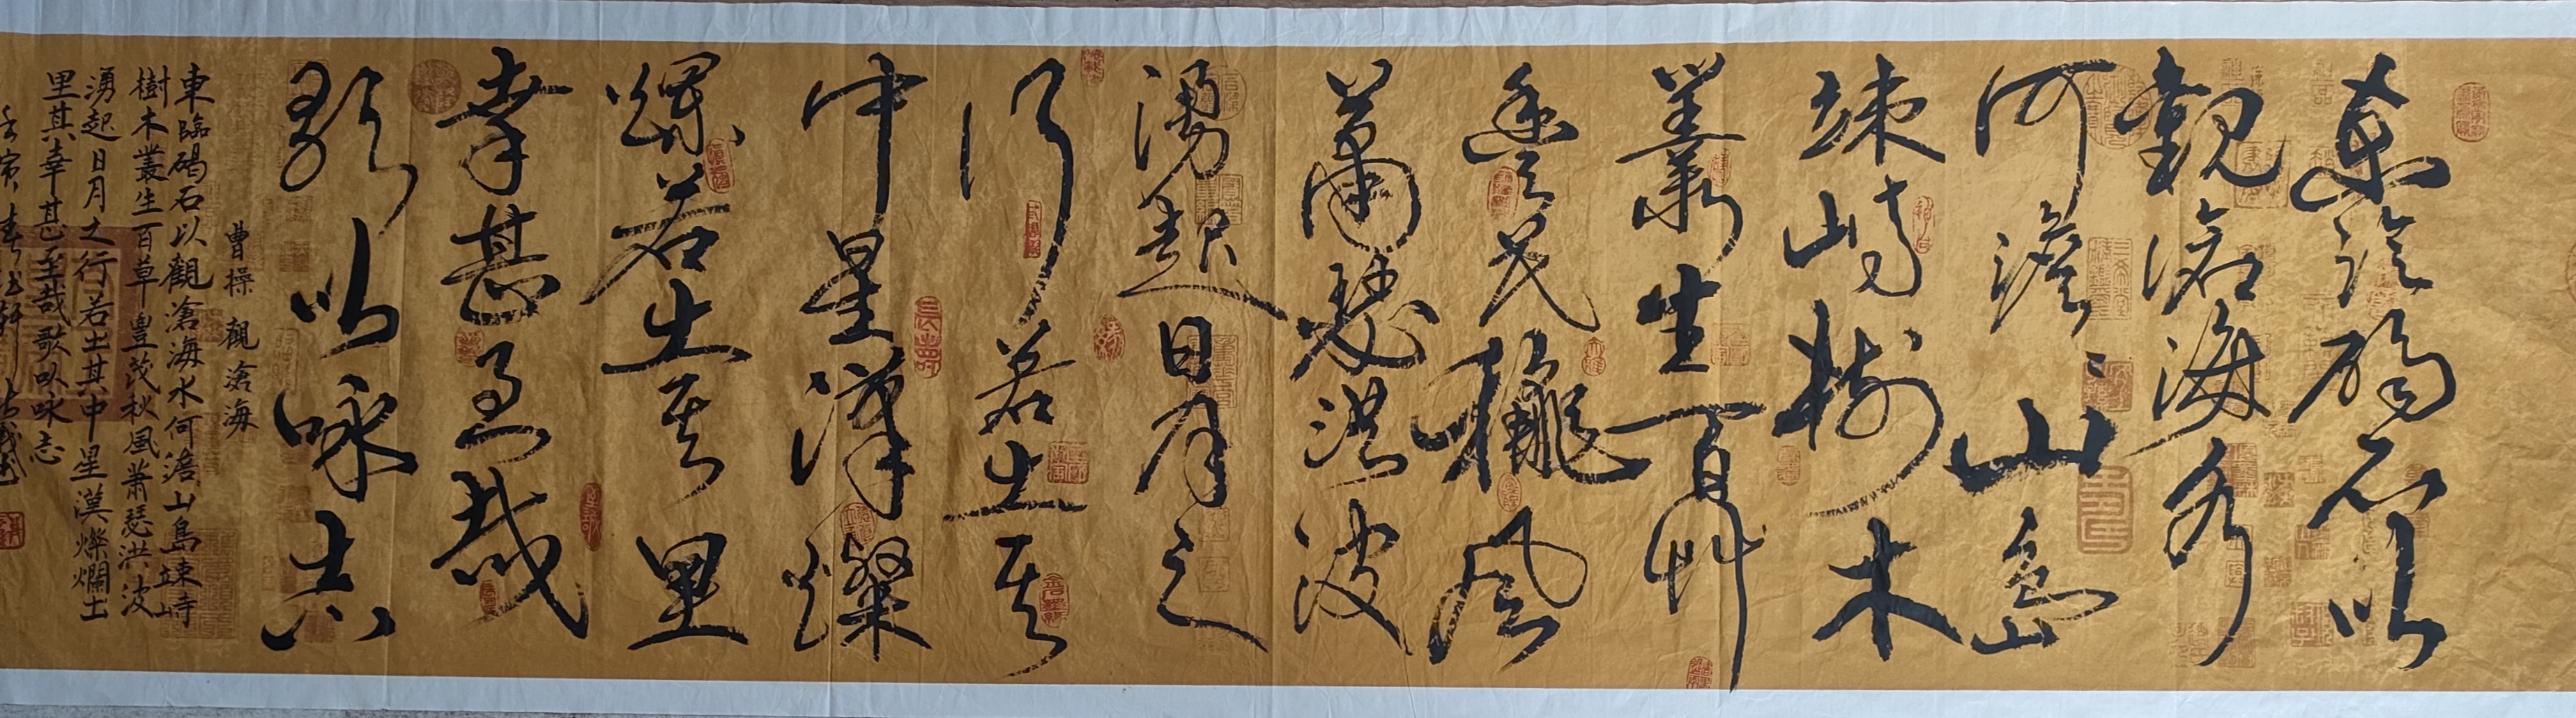 東臨碣石以
觀滄海水
何澹々山島
竦峙樹木
叢生百草
豐茂龝風
蕭瑟洪波
湧起日月之
行若出其
中星漢燦
爛若出其里
幸甚至哉
歌以咏志
曹操 觀滄海
東臨碣石以觀滄海水何澹山島竦峙
樹木叢生百草豐茂秋風蕭瑟洪波
湧起日月之行若出其中星漢燦爛出
里其幸甚至哉歌以咏志
壬寅春